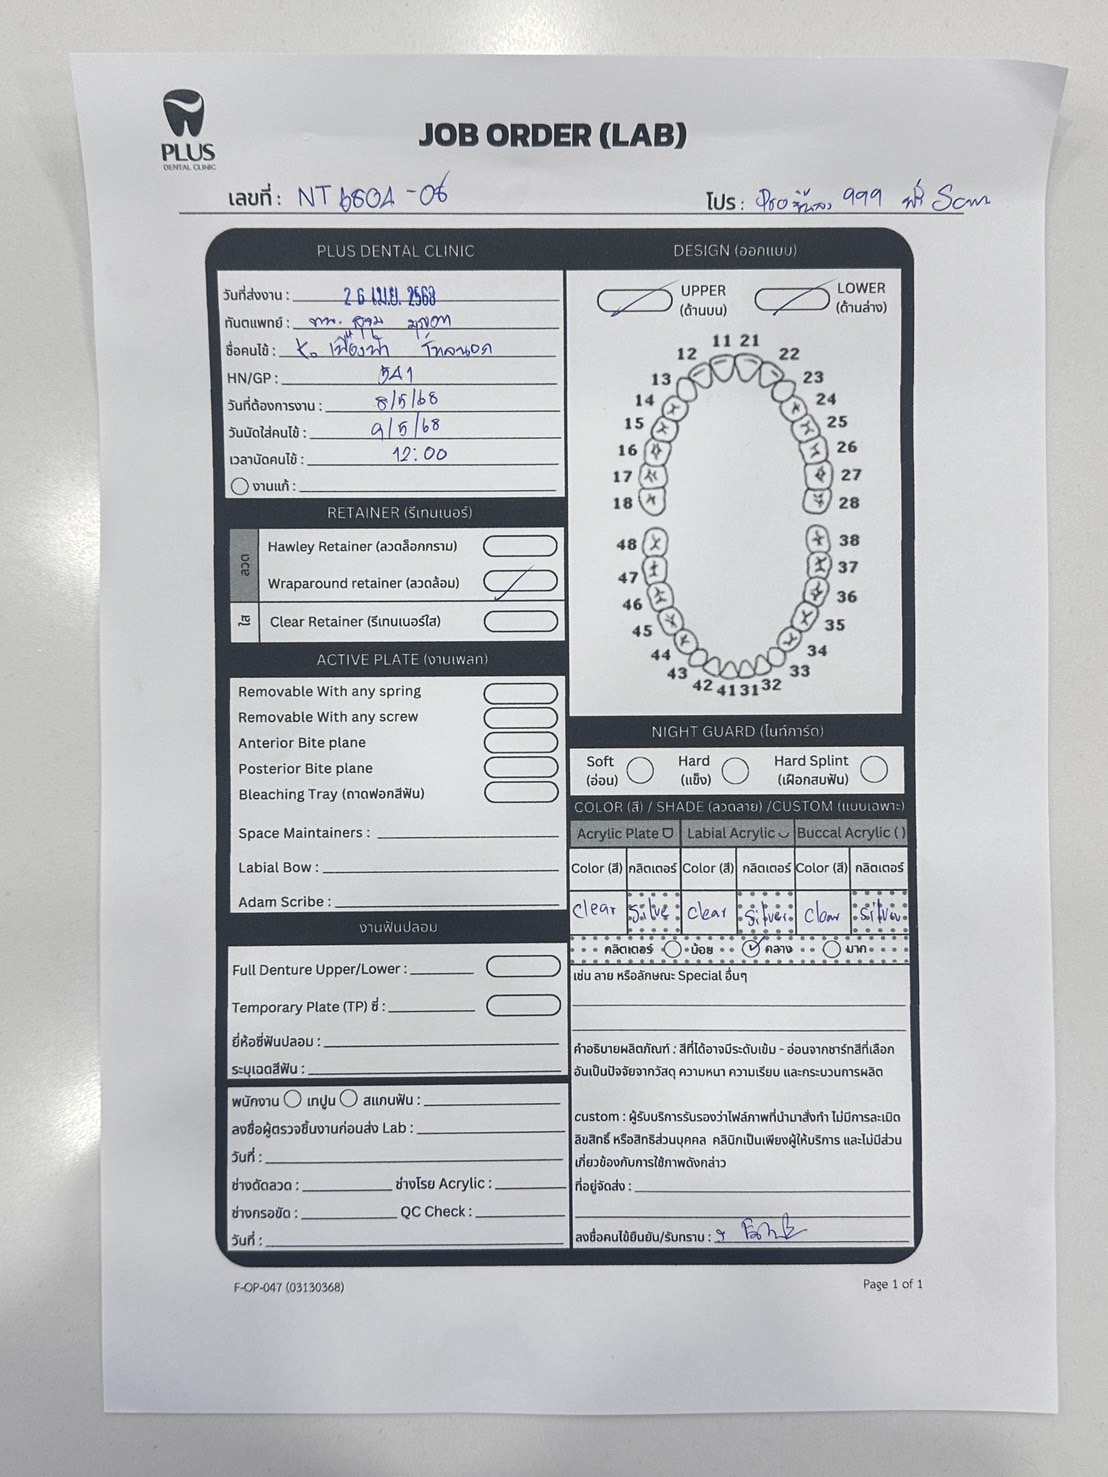 PLUS
DENTAL CLINIC
JOB ORDER (LAB)
เลขที่ : NT6804-06
โปร : 999 ฟรี Scan
PLUS DENTAL CLINIC
วันที่ส่งงาน : 26 เม.ย. 2568
ทันตแพทย์ : ทพ.
ชื่อคนไข้ : K. เฟื่องฟ้า
HN/GP : 541
วันที่ต้องการงาน : 8/5/68
วันนัดใส่คนไข้ : 9/5/68
เวลานัดคนไข้ : 12:00
งานแก้ :
RETAINER (รีเทนเนอร์)
ลวด
Hawley Retainer (ลวดล็อกกราม)
Wraparound retainer (ลวดล้อม)
ใส
Clear Retainer (รีเทนเนอร์ใส)
ACTIVE PLATE (งานเพลท)
Removable With any spring
Removable With any screw
Anterior Bite plane
Posterior Bite plane
Bleaching Tray (ถาดฟอกสีฟัน)
Space Maintainers :
Labial Bow :
Adam Scribe :
งานฟันปลอม
Full Denture Upper/Lower :
Temporary Plate (TP) ซี่ :
ยี่ห้อซี่ฟันปลอม :
ระบุเฉดสีฟัน :
พนักงาน เทปูน สแกนฟัน :
ลงชื่อผู้ตรวจชิ้นงานก่อนส่ง Lab :
วันที่ :
ช่างดัดลวด : ช่างโรย Acrylic :
ช่างกรอขัด : QC Check :
วันที่ :
DESIGN (ออกแบบ)
UPPER (ด้านบน) LOWER (ด้านล่าง)
11 21
12 22
13 23
14 24
15 25
16 26
17 27
18 28
48 38
47 37
46 36
45 35
44 34
43 33
42 41 31 32
NIGHT GUARD (ไนท์การ์ด)
Soft (อ่อน) Hard (แข็ง) Hard Splint (เฝือกสบฟัน)
COLOR (สี) / SHADE (ลวดลาย) /CUSTOM (แบบเฉพาะ)
Acrylic Plate Labial Acrylic Buccal Acrylic ( )
Color (สี) กลิตเตอร์ Color (สี) กลิตเตอร์ Color (สี) กลิตเตอร์
clear silve clear silver clear silver
กลิตเตอร์ น้อย กลาง มาก
เช่น ลาย หรือลักษณะ Special อื่นๆ
คำอธิบายผลิตภัณฑ์ : สีที่ได้อาจมีระดับเข้ม - อ่อนจากชาร์ทสีที่เลือก
อันเป็นปัจจัยจากวัสดุ ความหนา ความเรียบ และกระบวนการผลิต
custom : ผู้รับบริการรับรองว่าไฟล์ภาพที่นำมาสั่งทำ ไม่มีการละเมิด
ลิขสิทธิ์ หรือสิทธิส่วนบุคคล คลินิกเป็นเพียงผู้ให้บริการ และไม่มีส่วน
เกี่ยวข้องกับการใช้ภาพดังกล่าว
ที่อยู่จัดส่ง :
ลงชื่อคนไข้ยืนยัน/รับทราบ :
F-OP-047 (03130368)
Page 1 of 1